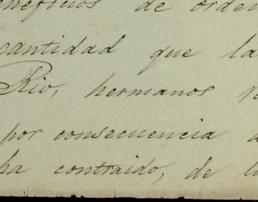 beneficios de orden
cantidad que la
Rio, hermanos
por consecuencia
ha contraido, de